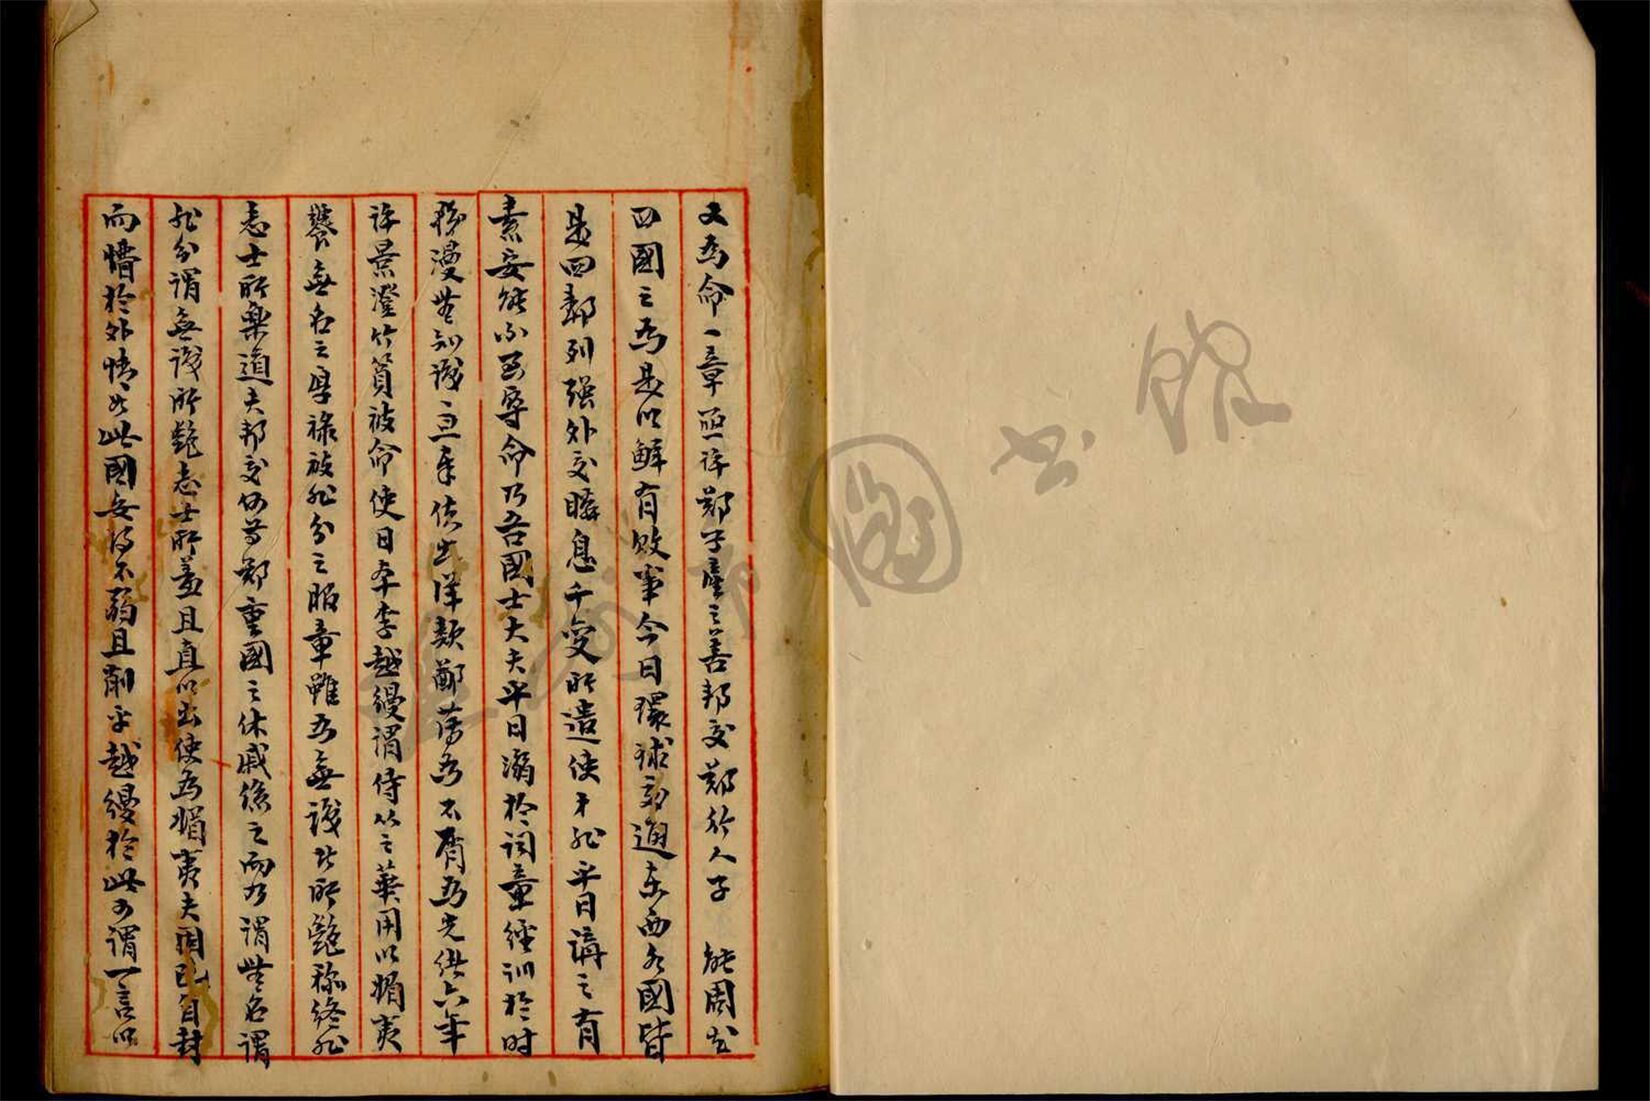 又為命一章並詳鄭子產之善邦交鄭行人子 能周知
四國之為是以鮮有敗事今日環球交通東西各國皆
是四鄰列強外交瞬息千變所遣使才非平日講之有
素安能不辱命乃吾國士大夫平日溺於詞章經訓於時
務漫無知識 年使出洋 鄭 為不屑為光緒六年
許景澄竹篔被命使日本李越縵謂侍 之華用以媚夷
褎無名之厚祿被非分之服章雖為無識者所艷稱終非
志士所樂道夫邦交何等鄭重國之休戚係之而乃謂無名謂
非分謂無識所艷志士所羞且直以出使為媚夷夫固已自封
而懵於外情如此國安得不弱且削乎越縵於此可謂一言以
圖書館